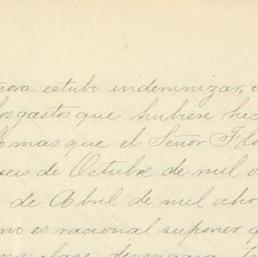 ñora estubo indemnizar,
los gastos que hubiere hec
mas que el Señor Flo
seis de Octubre de mil o
de Abril de mil ocho
no es racional suponer q